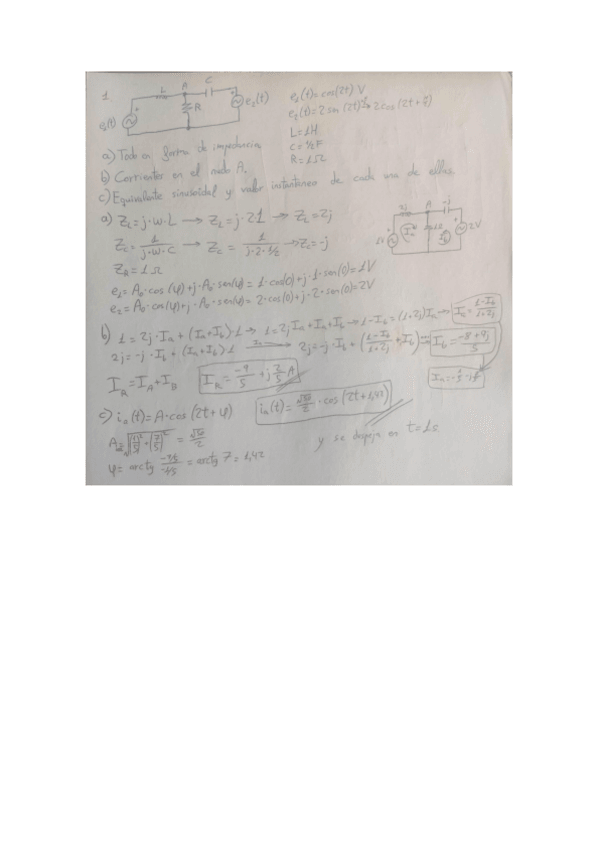 1.
L
A
C
R
e₁(t)
e₂(t)
e₁(t)= cos(2t) V
e₂(t)= 2 sen (2t)
L=1H
C=½F
R=1Ω
a) Todo en forma de impedancia
b) Corrientes en el nudo A.
c) Equivalente sinusoidal y valor instantaneo de cada una de ellas.
a) Z_L=j·w·L → Z_L=j·2·1 → Z_L=2j
Z_C= 1/(j·w·C) → Z_C= 1/(j·2·½) → Z_C=-j
Z_R=1Ω
e₁=A₀·cos(φ)+j·A₀·sen(φ)= 1·cos(0)+j·1·sen(0)=1V
e₂=A₀·cos(φ)+j·A₀·sen(φ)= 2·cos(0)+j·2·sen(0)=2V
2j
A
-j
1Ω
2V
b) 1=2j·I_a+(I_a+I_b)·1 → 1=2jI_a+I_a+I_b → 1-I_b=(1+2j)I_a → I_a= (1-I_b)/(1+2j)
2j=-j·I_b+(I_a+I_b)·1 → 2j=-j·I_b+((1-I_b)/(1+2j)+I_b) → I_b= (-8+9j)/5
I_R=I_A+I_B
I_R= -9/5 +j 2/5 A
c) i_a(t)=A·cos(2t+φ)
·cos(2t+1,42)
φ=arctg = arctg 7=1,42
y se despeja en t=1s